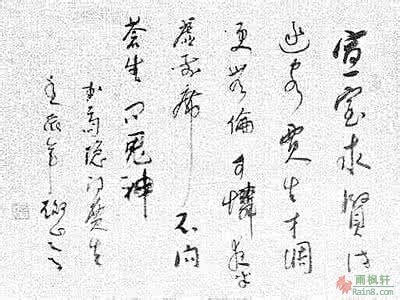 宣室求賢訪
逐客賈生才調
更無倫可憐夜半
虛前席不問
蒼生問鬼神
李商隱詩賈生
雨枫轩
Rain8.com